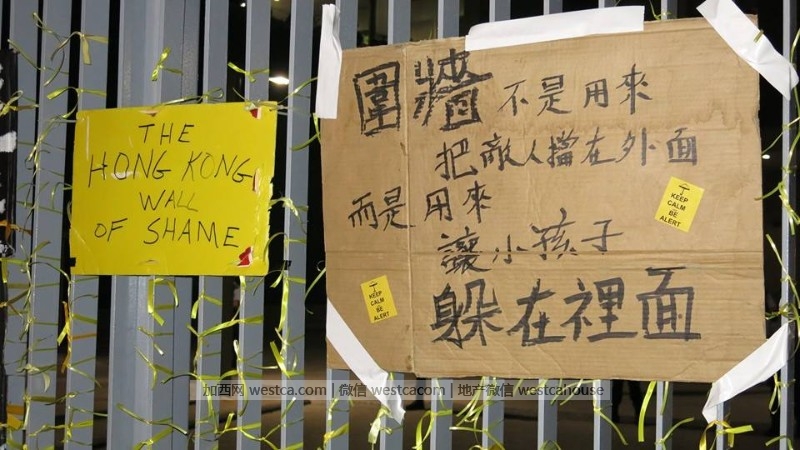 THE
HONG KONG
WALL
OF SHAME
圍牆不是用來
把敵人擋在外面
而是用來
讓小孩子
躲在裡面
KEEP
CALM
BE
ALERT
KEEP
CALM
BE
ALERT
加西网 westca.com | 微信 westcacom | 地产微信 westcahouse